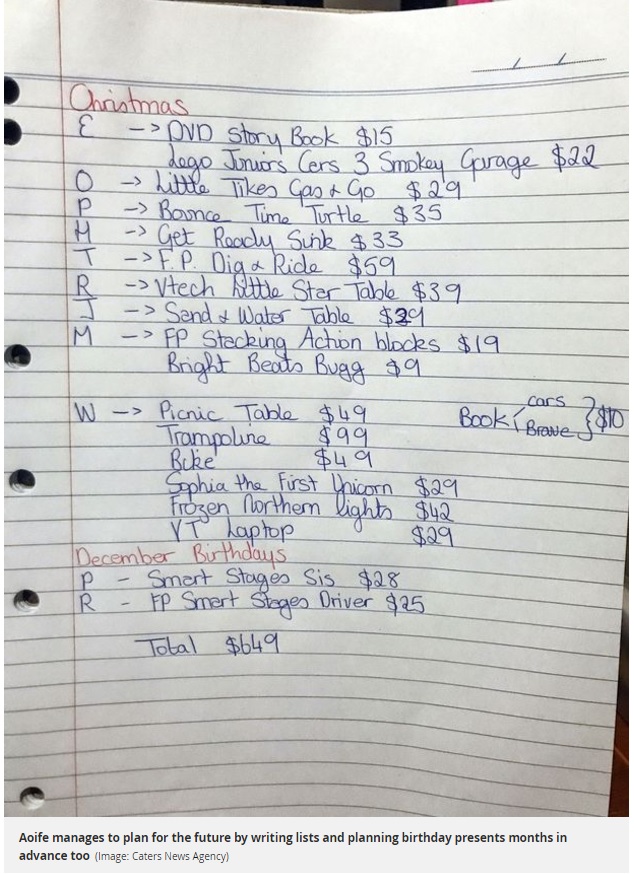 Christmas
E -> DVD Story Book $15
Lego Juniors Cars 3 Smokey Garage $22
O -> Little Tikes Gas & Go $29
P -> Bounce Time Turtle $35
M -> Get Ready Sink $33
T -> F.P. Dig & Ride $59
R -> Vtech Little Star Table $39
J -> Sand & Water Table $39
M -> FP Stacking Action blocks $19
Bright Beats Bugg $9
W -> Picnic Table $49
Book { cars Brave } $10
Trampoline $99
Bike $49
Sophia the First Unicorn $29
Frozen Northern lights $42
VT Laptop $29
December Birthdays
P - Smart Stages Sis $28
R - FP Smart Stages Driver $25
Total $649
Aoife manages to plan for the future by writing lists and planning birthday presents months in
advance too (Image: Caters News Agency)